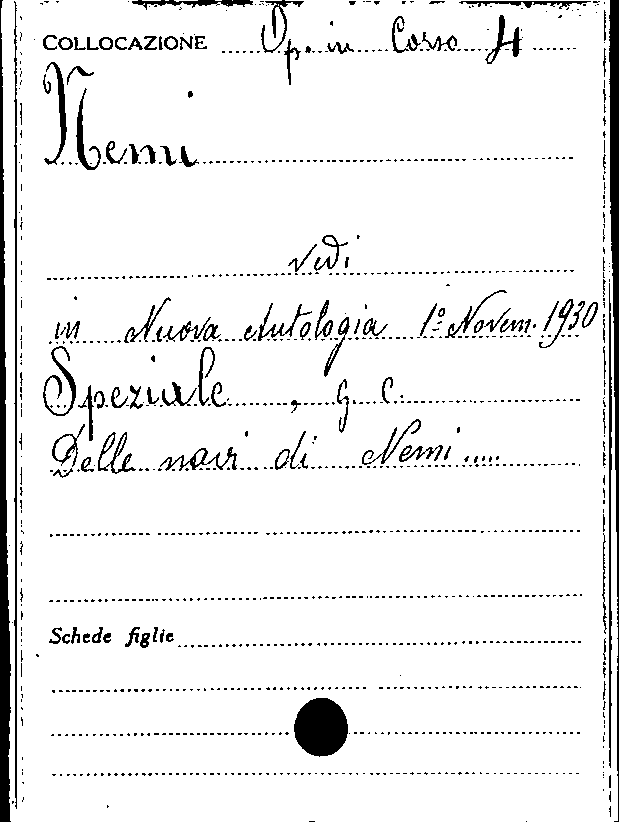 COLLOCAZIONE Op. in Corso 4
Nemi
vedi
in Nuova Antologia 1º Novem. 1930
Speziale, G. C.
Delle navi di Nemi.....
Schede figlie